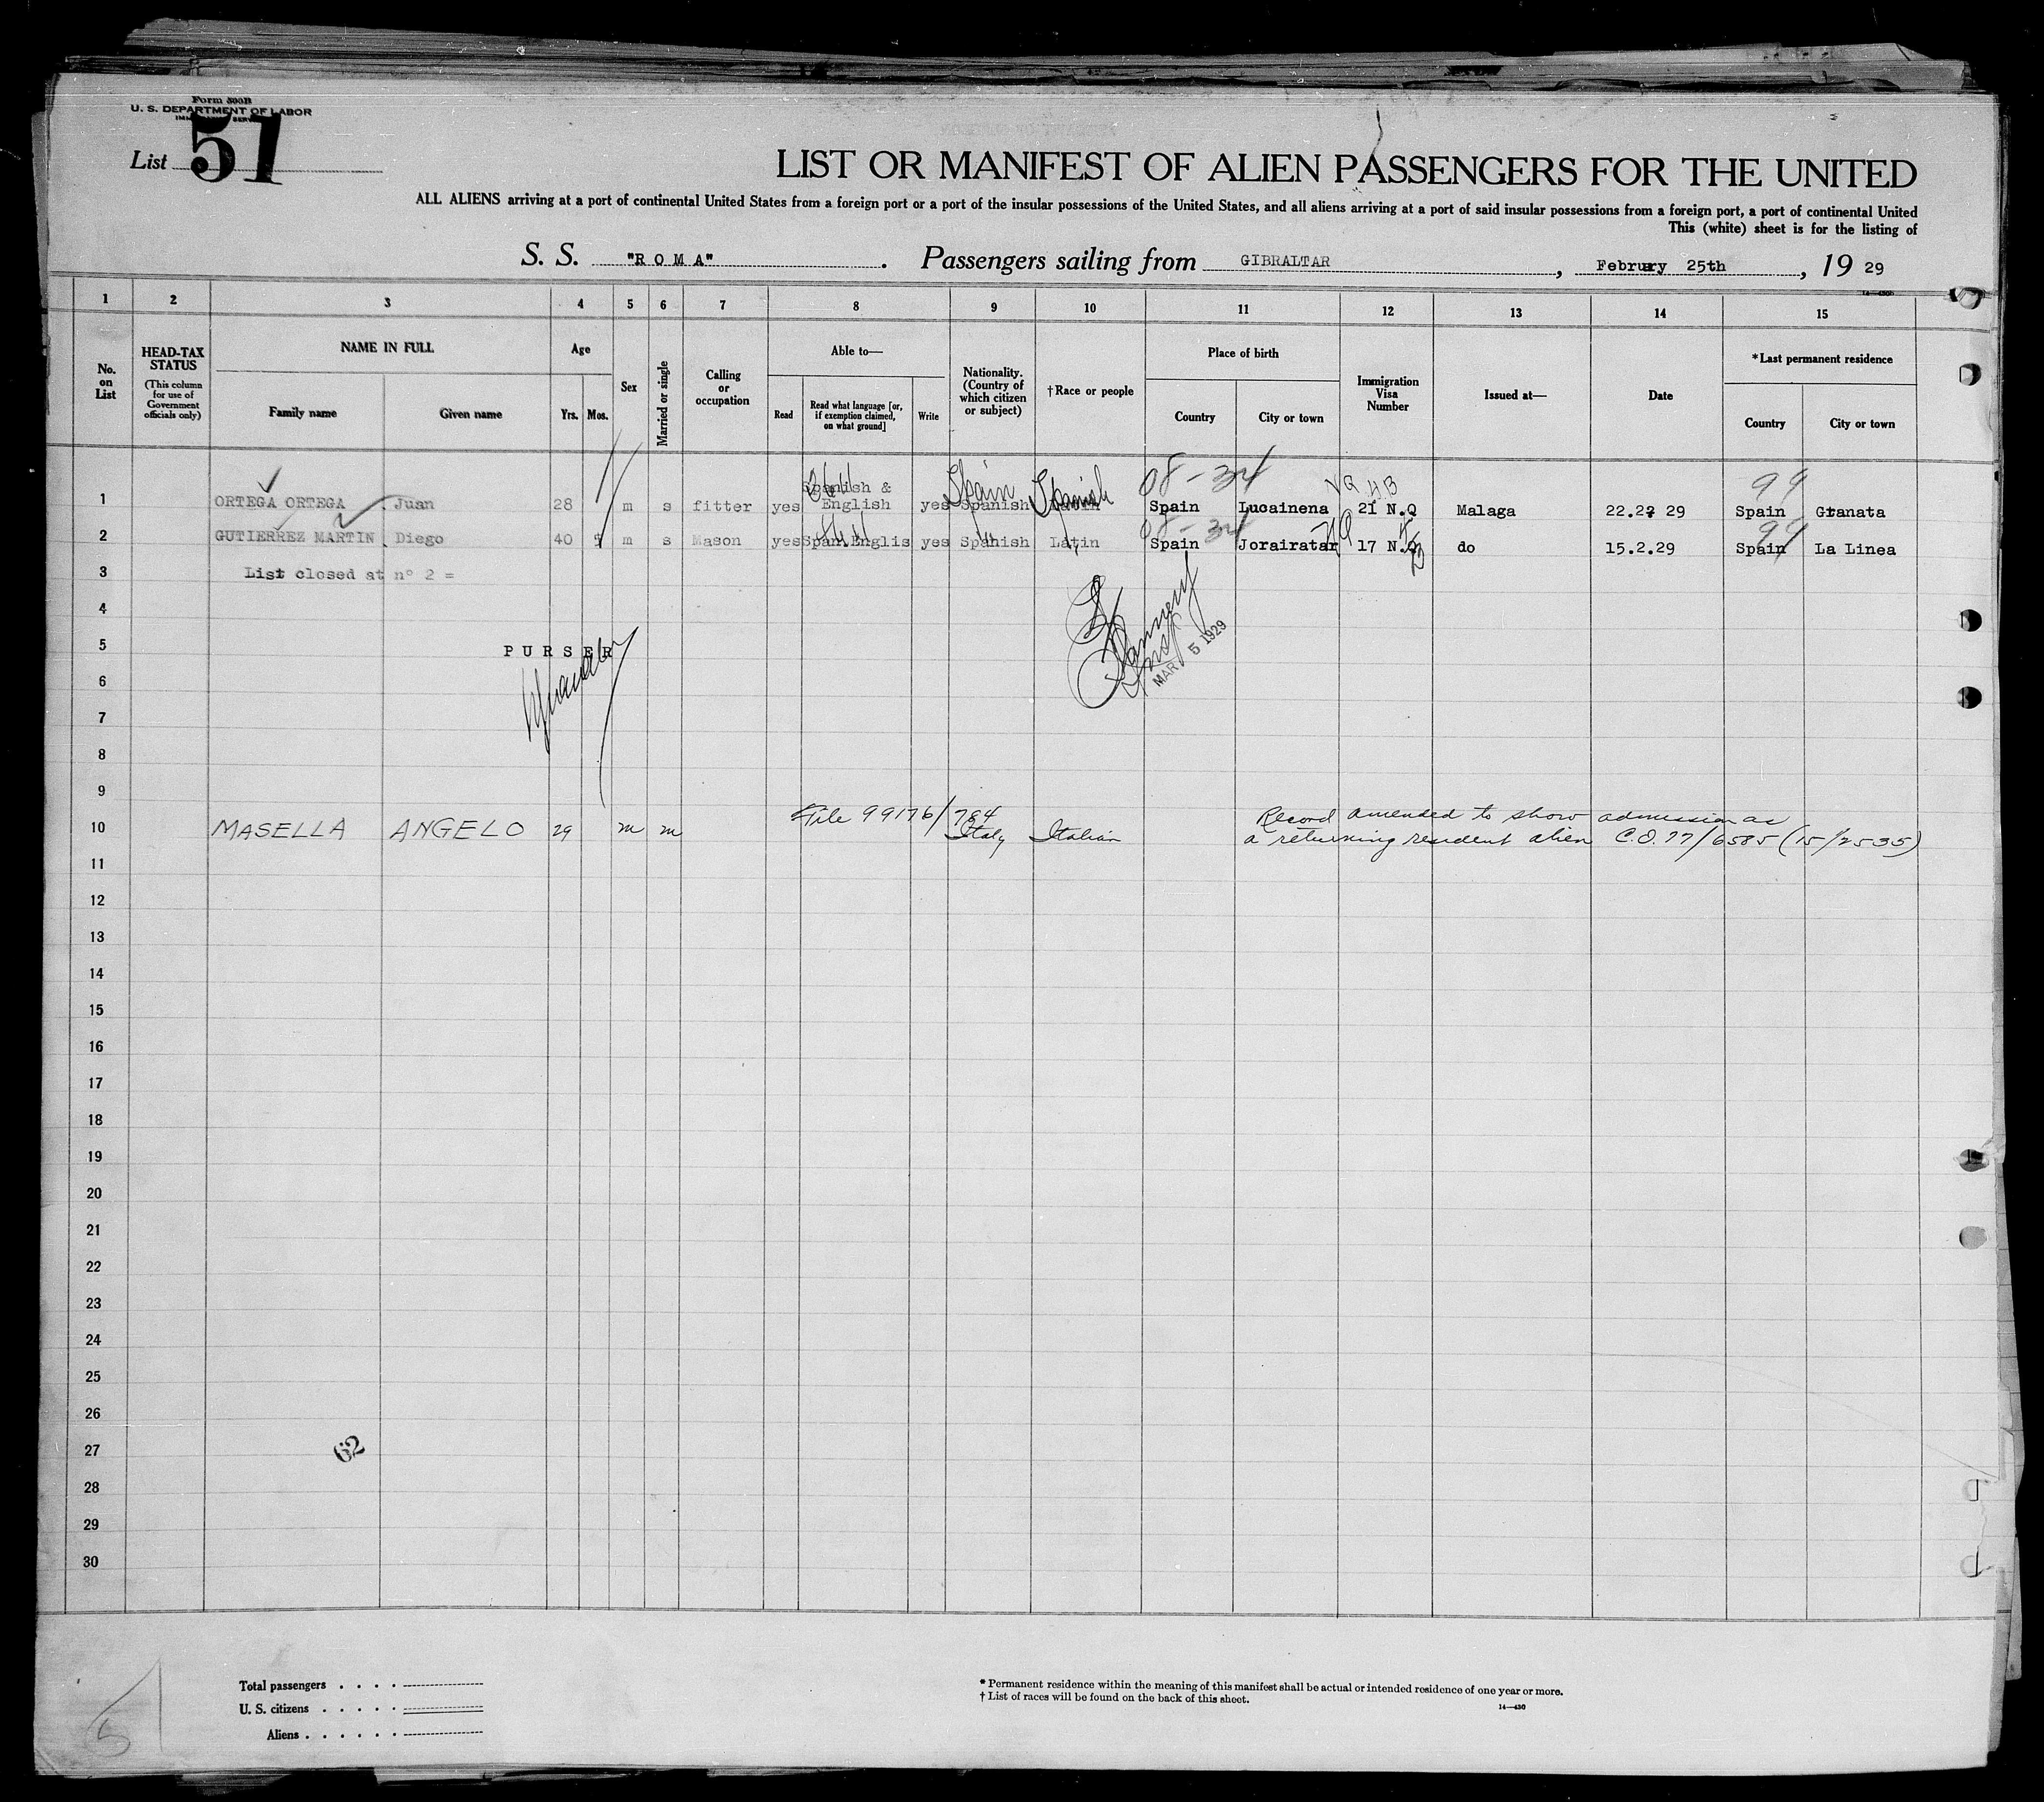 Form 500B
U. S. DEPARTMENT OF LABOR
List 51
LIST OR MANIFEST OF ALIEN PASSENGERS FOR THE UNITED
ALL ALIENS arriving at a port of continental United States from a foreign port or a port of the insular possessions of the United States, and all aliens arriving at a port of said insular possessions from a foreign port, a port of continental United
This (white) sheet is for the listing of
S. S. "ROMA". Passengers sailing from GIBRALTAR, Februry 25th, 19 29
1 2 3 4 5 6 7 8 9 10 11 12 13 14 15
No. on List
HEAD-TAX STATUS
(This column for use of Government officials only)
NAME IN FULL
Family name
Given name
Age
Yrs. Mos.
Sex
Married or single
Calling or occupation
Able to—
Read
Read what language [or, if exemption claimed, on what ground]
Write
Nationality. (Country of which citizen or subject)
†Race or people
Place of birth
Country
City or town
Immigration Visa Number
Issued at—
Date
*Last permanent residence
Country
City or town
08-34 NQ HB 99
Spain Spanish
1 ORTEGA ORTEGA Juan 28 m s fitter yes Spanish & English yes Spanish Spain Lucainena 21 N.Q Malaga 22.2 29 Spain Granata
08-34 NQ 99
2 GUTIERREZ MARTIN Diego 40 m s Mason yes Span.Englis yes Spanish Latin Spain Jorairatar 17 N.Q do 15.2.29 Spain La Linea
3 List closed at n° 2 =
4
5 PURSER
MAR 5 1929
6
7
8
9
File 99176/784
Record amended to show admission as
10 MASELLA ANGELO 29 m m Italy Italian a returning resident alien C.O. 77/6585 (15/2535)
11
12
13
14
15
16
17
18
19
20
21
22
23
24
25
26
27
62
28
29
30
Total passengers
U. S. citizens
Aliens
* Permanent residence within the meaning of this manifest shall be actual or intended residence of one year or more.
† List of races will be found on the back of this sheet.
14—430